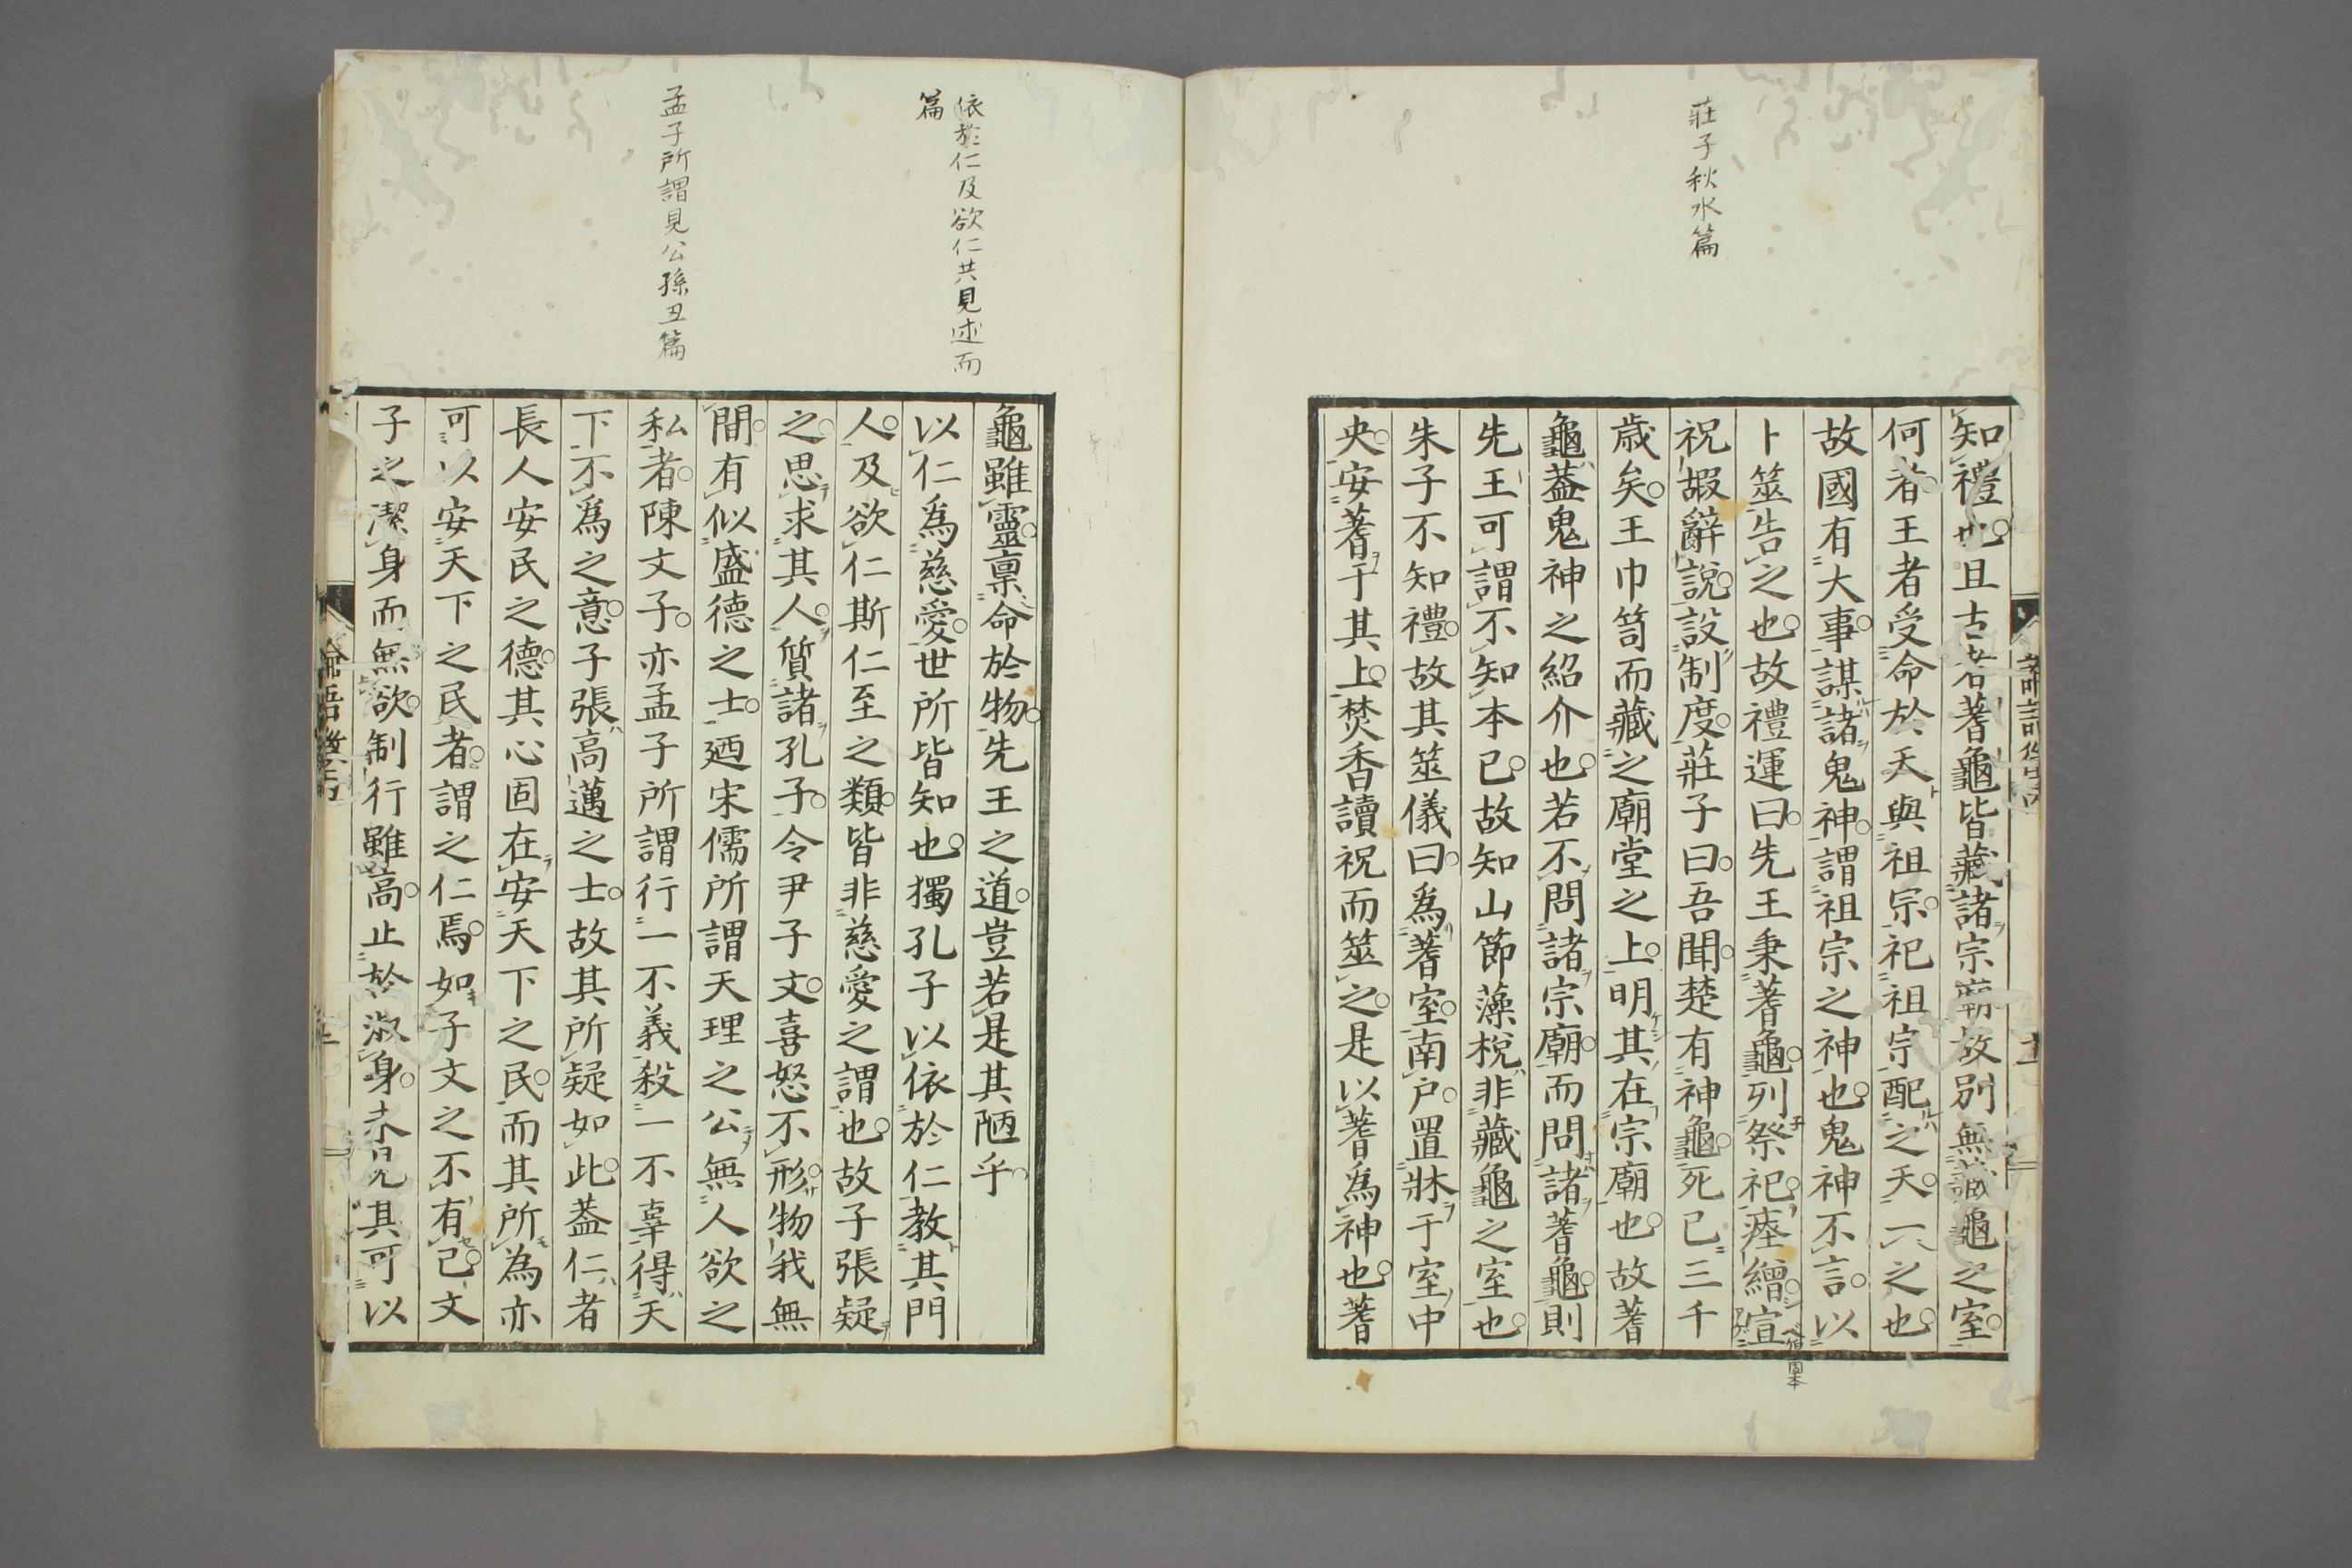 莊子秋水篇
知禮也且古者蓍龜皆藏諸宗廟故別無藏龜之室
何者王者受命於天與祖宗祀祖宗配之天一之也
故國有大事謀諸鬼神謂祖宗之神也鬼神不言以
卜筮告之也故禮運曰先王秉蓍龜列祭祀瘞繒宣
祝嘏辭說設制度莊子曰吾聞楚有神龜死已三千
歲矣王巾笥而藏之廟堂之上明其在宗廟也故蓍
龜蓋鬼神之紹介也若不問諸宗廟而問諸蓍龜則
先王可謂不知本已故知山節藻梲非藏龜之室也
朱子不知禮故其筮儀曰為蓍室南戶置牀于室中
央安蓍于其上焚香讀祝而筮之是以蓍為神也蓍
依於仁及欲仁共見述而
篇
孟子所謂見公孫丑篇
龜雖靈稟命於物先王之道豈若是其陋乎
以仁為慈愛世所皆知也獨孔子以依於仁教其門
人及欲仁斯仁至之類皆非慈愛之謂也故子張疑
之思求其人質諸孔子令尹子文喜怒不形物我無
間有似盛德之士廼宋儒所謂天理之公無人欲之
私者陳文子亦孟子所謂行一不義殺一不辜得天
下不為之意子張高邁之士故其所疑如此蓋仁者
長人安民之德其心固在安天下之民而其所為亦
可以安天下之民者謂之仁焉如子文之不有己文
子之潔身而無欲制行雖高止於淑身未見其可以